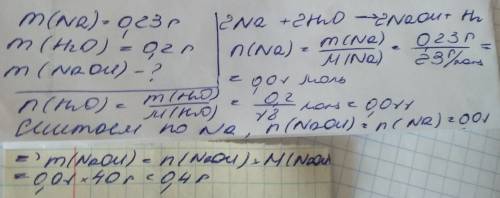 m(Na) = 0,23 г
m(H₂O) = 0,2 г
m(NaOH) - ?
2Na + 2H₂O → 2NaOH + H₂
n(Na) = m(Na)/M(Na) = 0,23 г/23 г/моль =
= 0,01 моль
n(H₂O) = m(H₂O)/M(H₂O) = 0,2/18 моль = 0,011
Считаем по Na, n(NaOH) = n(Na) = 0,01
=> m(NaOH) = n(NaOH) × M(NaOH)
= 0,01 × 40 г = 0,4 г